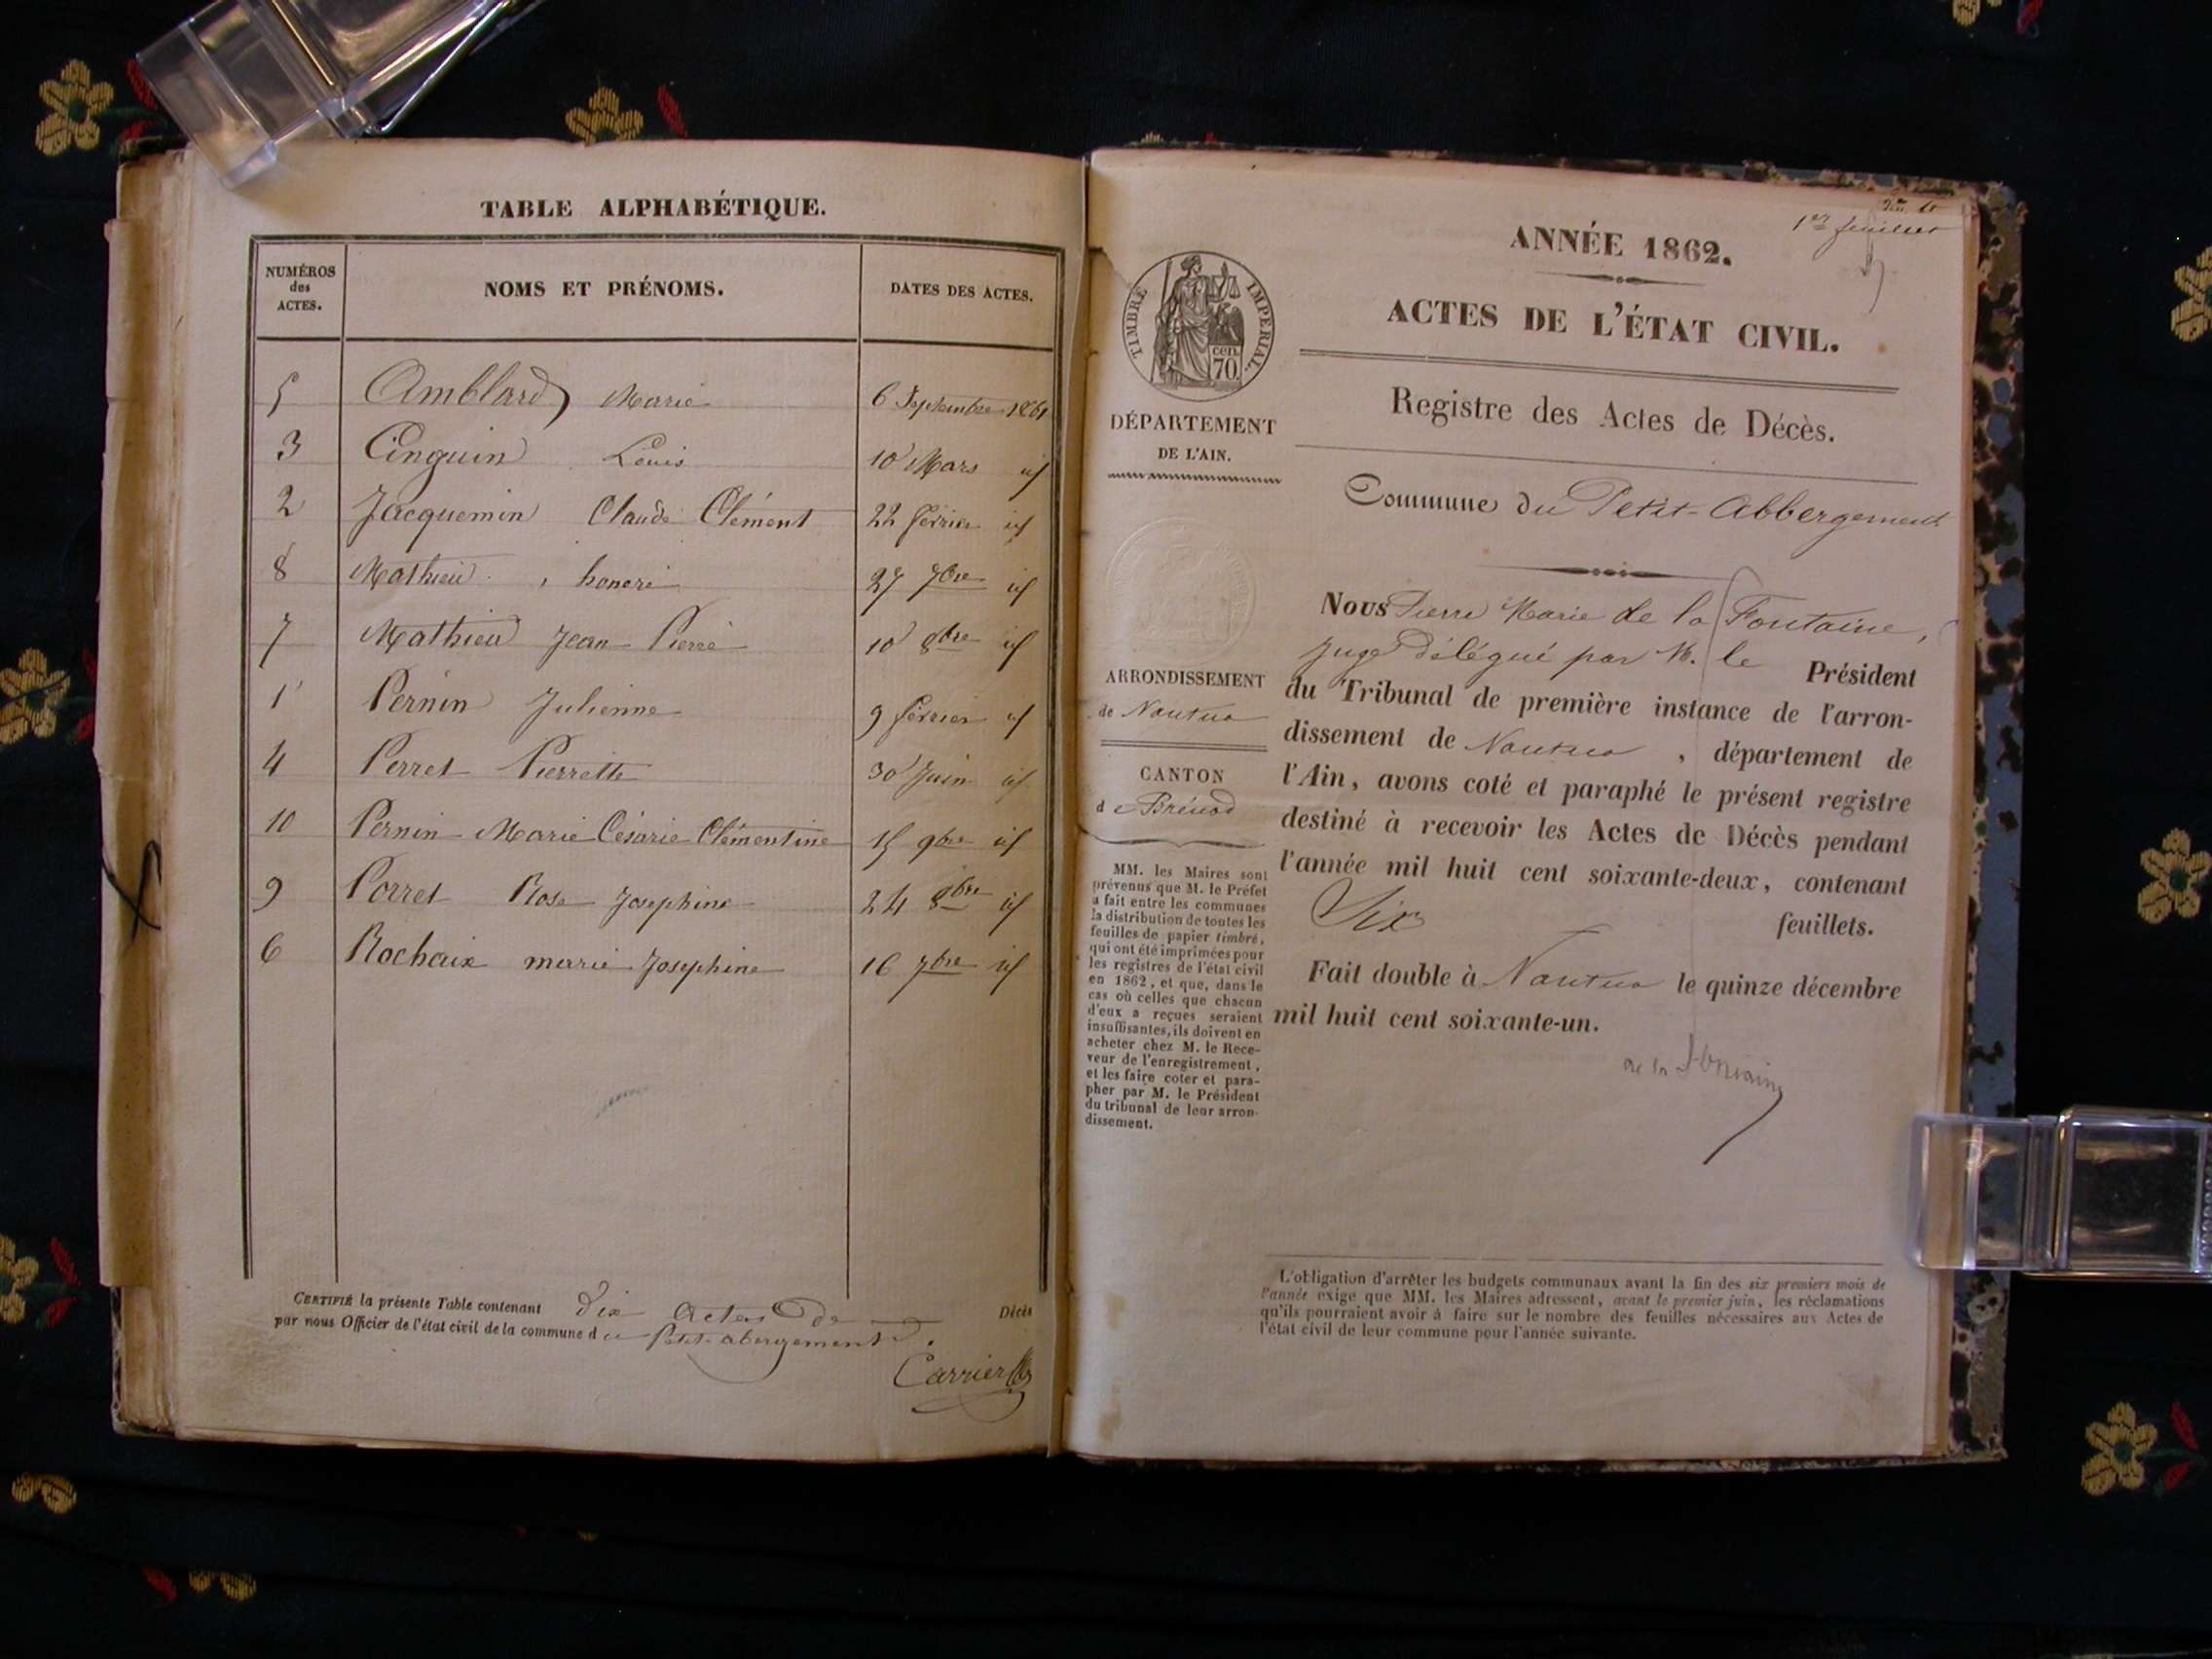 TABLE ALPHABÉTIQUE.
NUMÉROS des ACTES. NOMS ET PRÉNOMS. DATES DES ACTES.
5 Amblard Marie 6 Septembre 1861
3 Cinguin Louis 10 Mars id
2 Jacquemin Claude Clément 22 février id
8 Mathieu honoré 27 7bre id
7 Mathieu Jean Pierre 10 8bre id
1 Pernin Julienne 9 février id
4 Perret Pierrette 30 Juin id
10 Pernin Marie Césarie Clémentine 15 9bre id
9 Perret Rose Josephine 24 8bre id
6 Rochaix marie Josephine 16 7bre id
CERTIFIÉ la présente Table contenant dix Actes de Décès
par nous Officier de l'état civil de la commune du Petit-abergement.
Carrier
1er feuillet
ANNÉE 1862.
ACTES DE L'ÉTAT CIVIL.
Registre des Actes de Décès.
Commune du Petit-Abbergement
TIMBRE IMPERIAL.
cen. 70.
DÉPARTEMENT
DE L'AIN.
ARRONDISSEMENT
de Nantua
CANTON
de Brénod
MM. les Maires sont
prévenus que M. le Préfet
a fait entre les communes
la distribution de toutes les
feuilles de papier timbré,
qui ont été imprimées pour
les registres de l'état civil
en 1862, et que, dans le
cas où celles que chacun
d'eux a reçues seraient
insuffisantes, ils doivent en
acheter chez M. le Rece-
veur de l'enregistrement,
et les faire coter et para-
pher par M. le Président
du tribunal de leur arron-
dissement.
Nous Pierre Marie de la Fontaine,
Juge délégué par M. le Président
du Tribunal de première instance de l'arron-
dissement de Nantua, département de
l'Ain, avons coté et paraphé le présent registre
destiné à recevoir les Actes de Décès pendant
l'année mil huit cent soixante-deux, contenant
Six feuillets.
Fait double à Nantua le quinze décembre
mil huit cent soixante-un.
de la Fontaine
L'obligation d'arrêter les budgets communaux avant la fin des six premiers mois de
l'année exige que MM. les Maires adressent, avant le premier juin, les réclamations
qu'ils pourraient avoir à faire sur le nombre des feuilles nécessaires aux Actes de
l'état civil de leur commune pour l'année suivante.